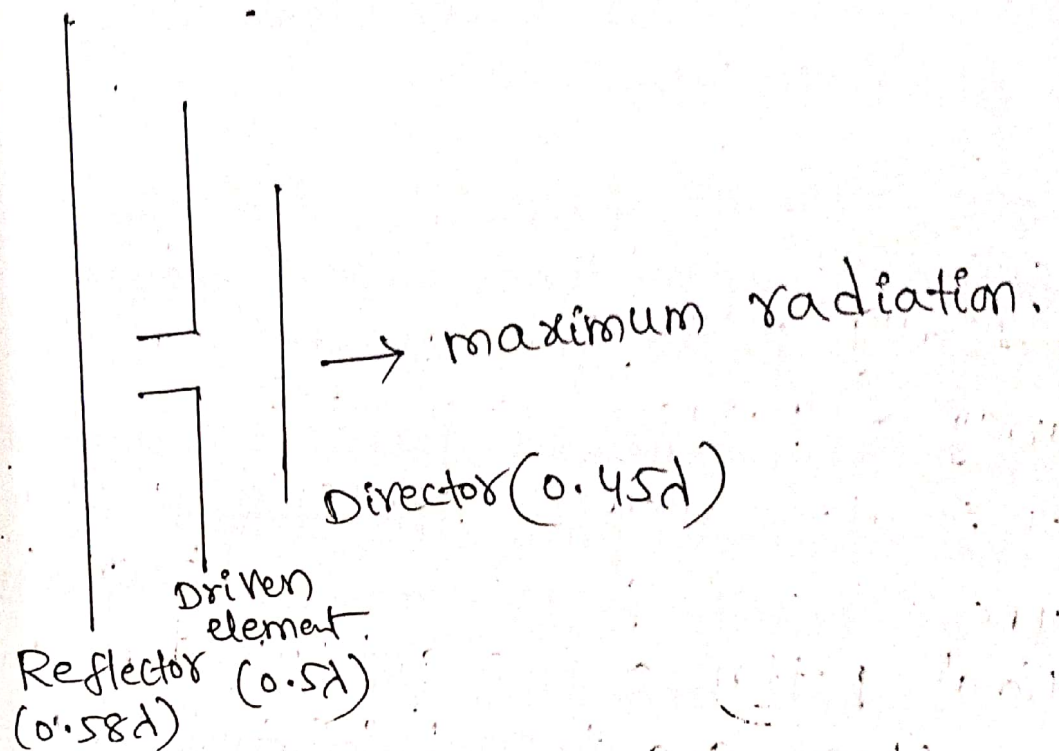 → maximum radiation.
Director (0.45λ)
Driven
element.
(0.5λ)
Reflector
(0.58λ)